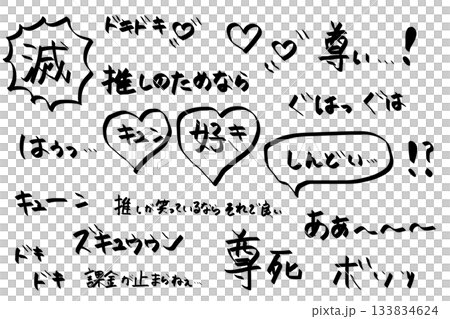 ドキドキ
滅
尊い…!
推しのためなら
ぐはっ ぐは
はうっ…
キュン
好き
しんどい…
!?
キューン
推しが笑っているなら それで良い
ああ〜〜〜
ズキュウゥン
ドキ
ドキ
課金が止まらねぇ…
尊死
ボソッ
133834624